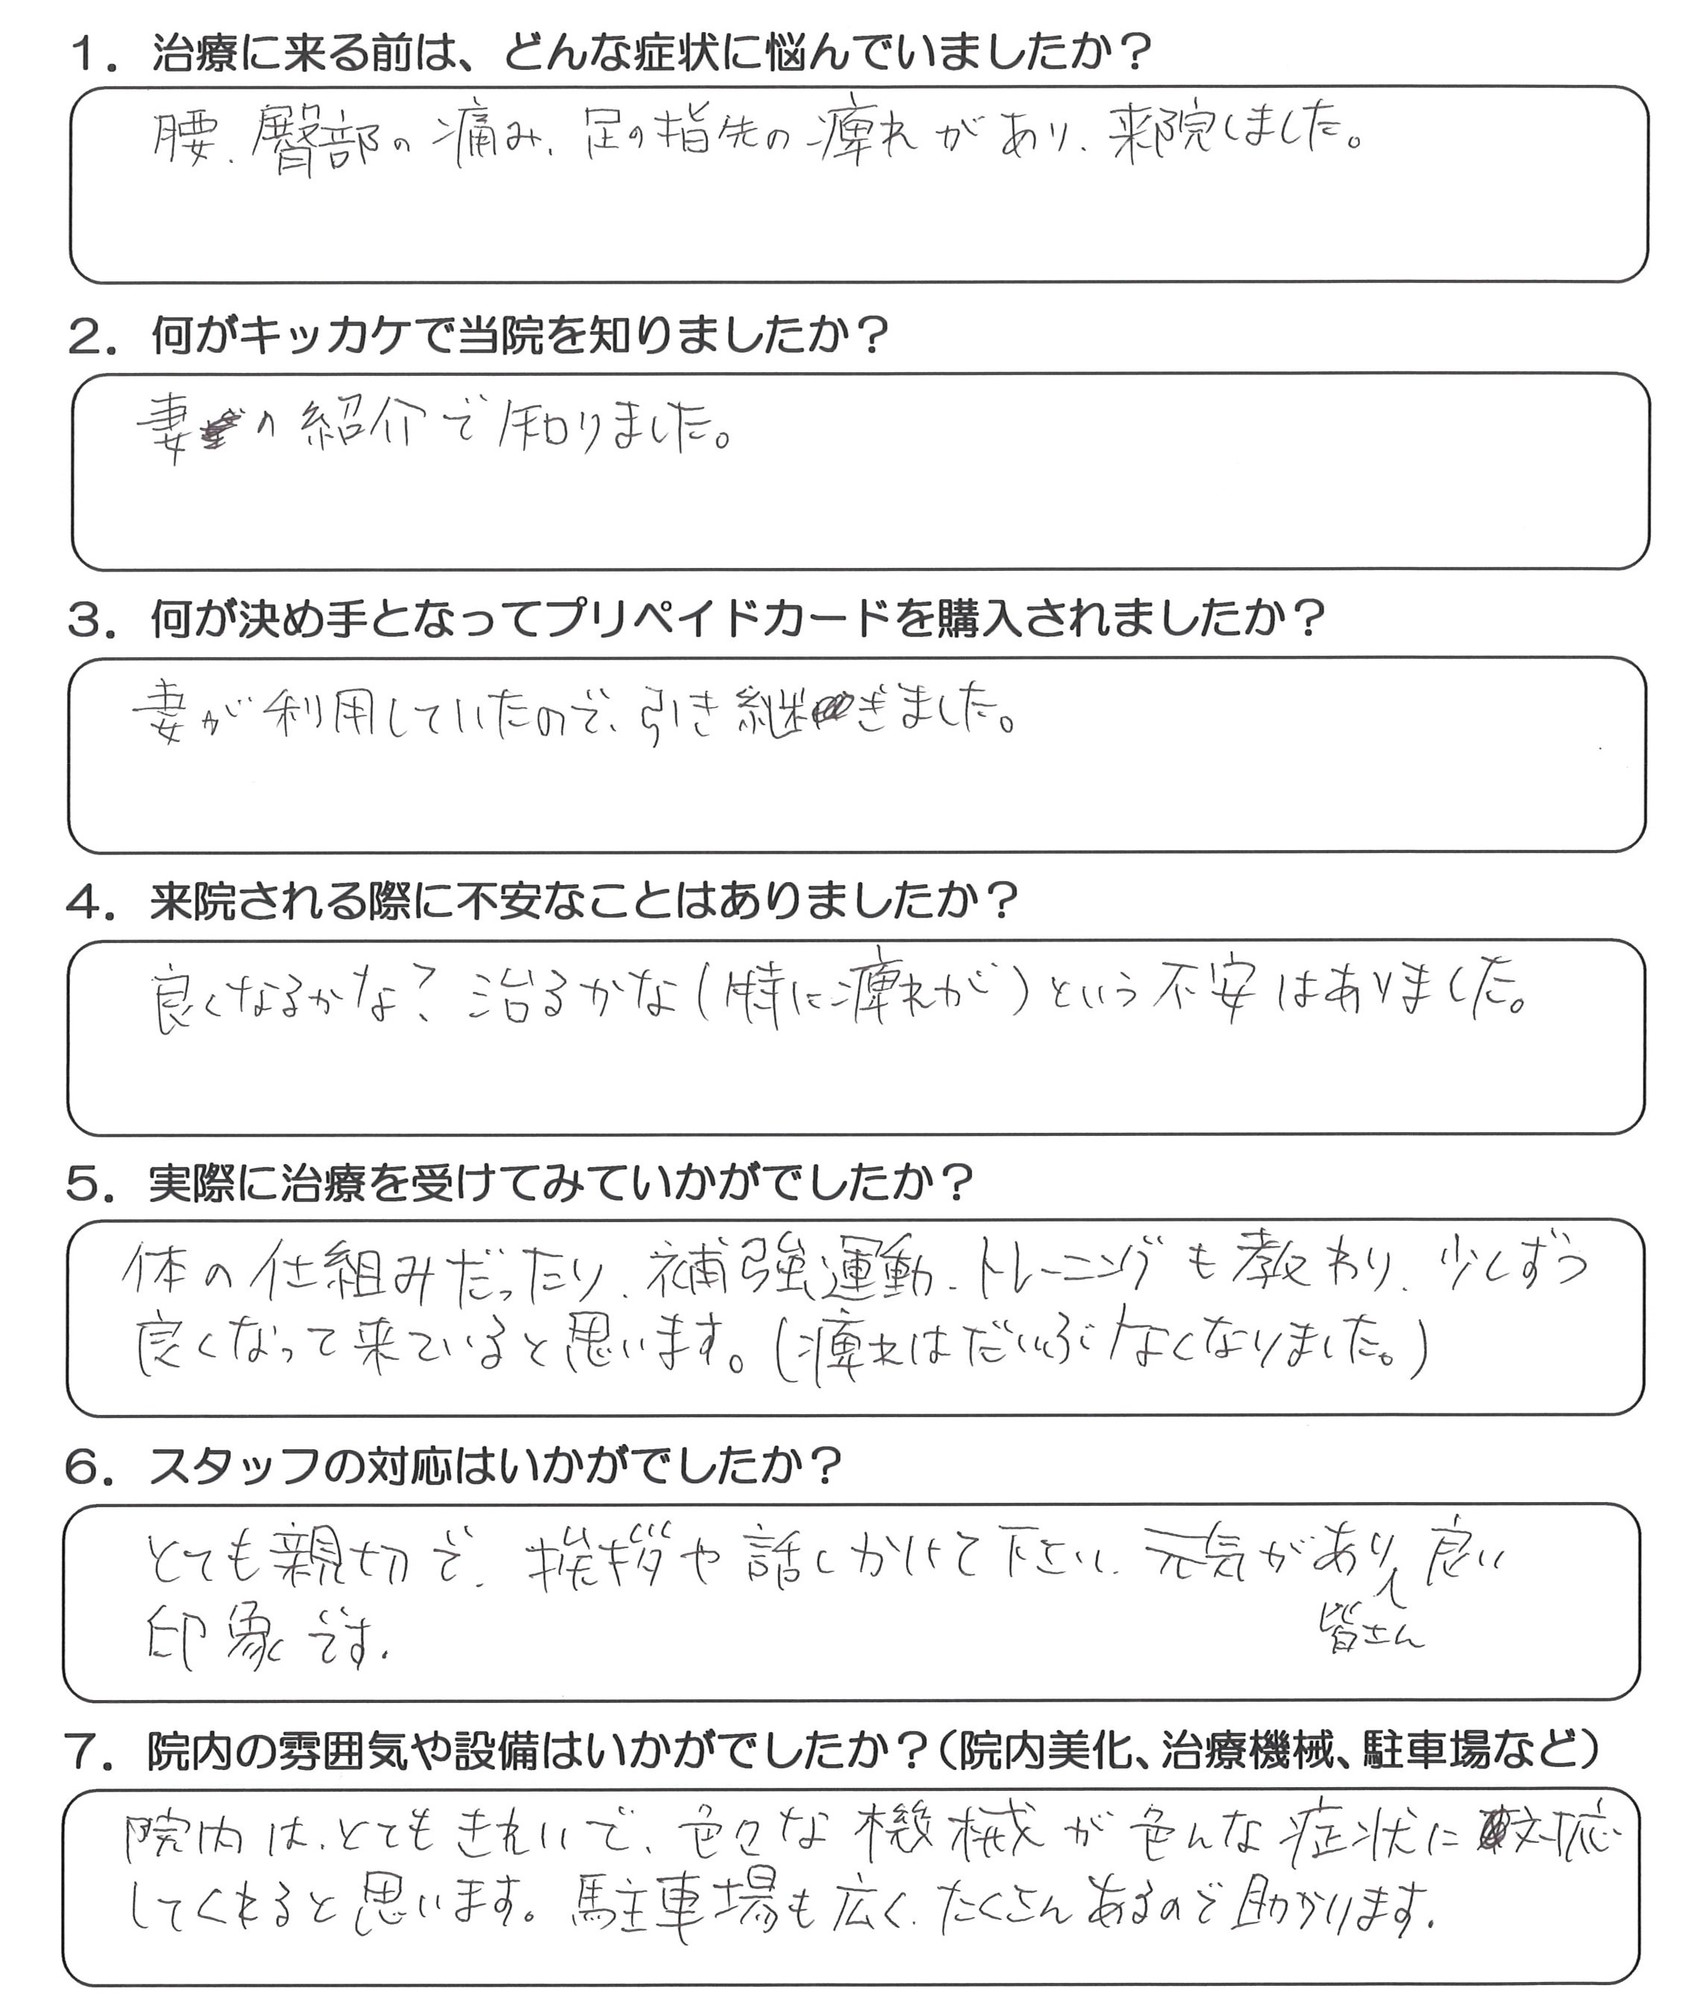 1．治療に来る前は、どんな症状に悩んでいましたか？
腰、臀部の痛み、足の指先の痺れがあり、来院しました。
2．何がキッカケで当院を知りましたか？
妻の紹介で知りました。
3．何が決め手となってプリペイドカードを購入されましたか？
妻が利用していたので、引き継ぎました。
4．来院される際に不安なことはありましたか？
良くなるかな？治るかな（特に痺れが）という不安はありました。
5．実際に治療を受けてみていかがでしたか？
体の仕組みだったり、補強運動、トレーニングも教わり、少しずつ
良くなって来ていると思います。（痺れはだいぶなくなりました。）
6．スタッフの対応はいかがでしたか？
とても親切で、挨拶や話しかけて下さい、元気があり皆さん良い
印象です。
7．院内の雰囲気や設備はいかがでしたか？（院内美化、治療機械、駐車場など）
院内は、とてもきれいで、色々な機械が色んな症状に対応
してくれると思います。駐車場も広く、たくさんあるので助かります。